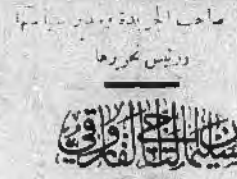 صاحب الجريدة ومدير سياستها
ورئيس تحريرها
سليمان التاجي الفاروقي